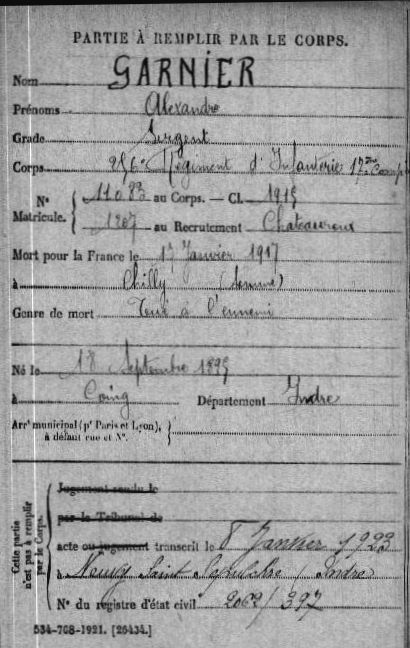 PARTIE À REMPLIR PAR LE CORPS.
Nom GARNIER
Prénoms Alexandre
Grade Sergent
Corps 256e Régiment d'Infanterie 17me Comp
No 11083 au Corps. — Cl. 1915
Matricule. 1207 au Recrutement Chateauroux
Mort pour la France le 17 Janvier 1917
à Chilly (Somme)
Genre de mort Tué à l'ennemi
Né le 18 Septembre 1895
à Coing Département Indre
Arrt municipal (pr Paris et Lyon), à défaut rue et No.
Cette partie n'est pas à remplir par le Corps.
Jugement rendu le
par le Tribunal de
acte ou jugement transcrit le 8 Janvier 1922
à Neuvy Saint Sépulchre (Indre)
No du registre d'état civil 2062/397
534-708-1921. [26434.]